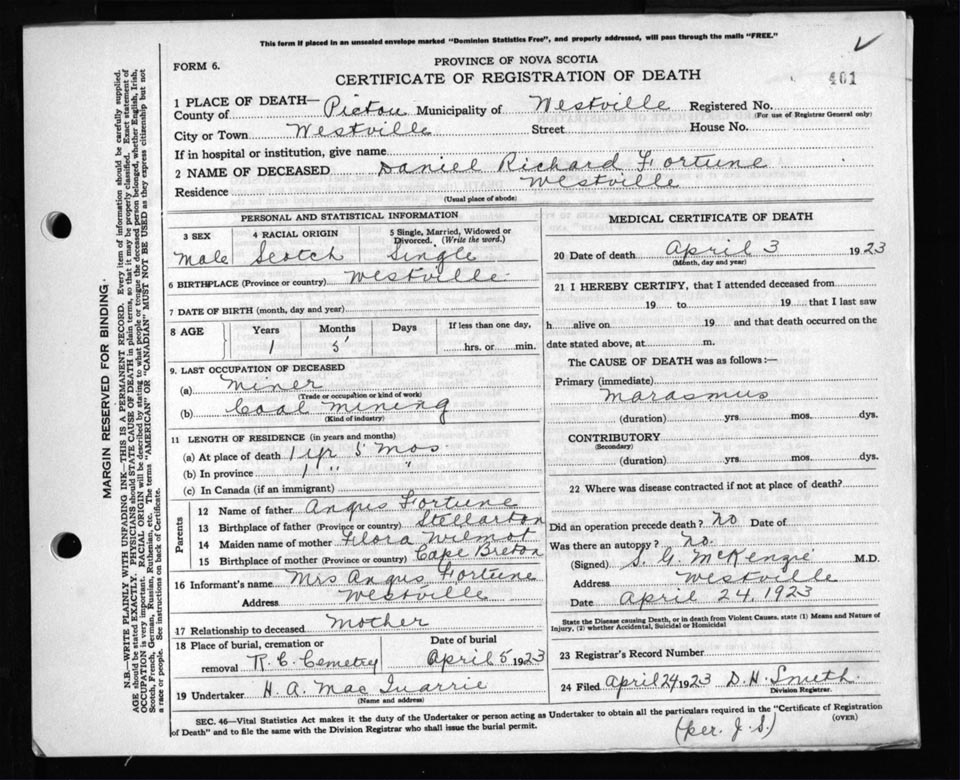 This form if placed in an unsealed envelope marked "Dominion Statistics Free", and properly addressed, will pass through the mails "FREE."
FORM 6.
PROVINCE OF NOVA SCOTIA
CERTIFICATE OF REGISTRATION OF DEATH
461
1 PLACE OF DEATH—
County of Pictou Municipality of Westville Registered No.
(For use of Registrar General only)
City or Town Westville Street House No.
If in hospital or institution, give name
2 NAME OF DECEASED Daniel Richard Fortune
Residence Westville
(Usual place of abode)
PERSONAL AND STATISTICAL INFORMATION
3 SEX 4 RACIAL ORIGIN 5 Single, Married, Widowed or Divorced. (Write the word.)
Male Scotch Single
6 BIRTHPLACE (Province or country) Westville
7 DATE OF BIRTH (month, day and year)
8 AGE Years Months Days If less than one day,
1 5 hrs. or min.
9. LAST OCCUPATION OF DECEASED
(a) Miner
(Trade or occupation or kind of work)
(b) Coal Mining
(Kind of industry)
11 LENGTH OF RESIDENCE (in years and months)
(a) At place of death 1 yr 5 mos
(b) In province 1 " "
(c) In Canada (if an immigrant)
Parents
12 Name of father Angus Fortune
13 Birthplace of father (Province or country) Stellarton
14 Maiden name of mother Flora Wilmot
15 Birthplace of mother (Province or country) Cape Breton
16 Informant's name Mrs Angus Fortune
Address Westville
17 Relationship to deceased Mother
18 Place of burial, cremation or removal R. C. Cemetry
Date of burial April 5 1923
19 Undertaker H. A. MacQuarrie
(Name and address)
MEDICAL CERTIFICATE OF DEATH
20 Date of death April 3 1923
(Month, day and year)
21 I HEREBY CERTIFY, that I attended deceased from
19 to 19 that I last saw
h alive on 19 and that death occurred on the
date stated above, at m.
The CAUSE OF DEATH was as follows:—
Primary (immediate)
Marasmus
(duration) yrs mos. dys.
CONTRIBUTORY
(Secondary)
(duration) yrs. mos. dys.
22 Where was disease contracted if not at place of death?
Did an operation precede death? No Date of
Was there an autopsy? No.
(Signed) S. G. McKenzie M.D.
Address Westville
Date April 24, 1923
State the Disease causing Death, or in death from Violent Causes, state (1) Means and Nature of
Injury, (2) whether Accidental, Suicidal or Homicidal
23 Registrar's Record Number
24 Filed April 24 1923 D. H. Smith
Division Registrar.
SEC. 46—Vital Statistics Act makes it the duty of the Undertaker or person acting as Undertaker to obtain all the particulars required in the "Certificate of Registration
of Death" and to file the same with the Division Registrar who shall issue the burial permit. (OVER)
(per. J. S.)
MARGIN RESERVED FOR BINDING.
N.B.—WRITE PLAINLY WITH UNFADING INK—THIS IS A PERMANENT RECORD. Every item of information should be carefully supplied.
AGE should be stated EXACTLY. PHYSICIANS should STATE CAUSE OF DEATH in plain terms, so that it may be properly classified. Exact statement of
OCCUPATION is very important. RACIAL ORIGIN will be described by stating to what people or tongue the deceased person belonged, whether English, Irish,
Scotch, French, German, Russian, Ruthenian, etc. The terms "AMERICAN" OR "CANADIAN" MUST NOT BE USED as they express citizenship but not
a race or people. See instructions on back of Certificate.